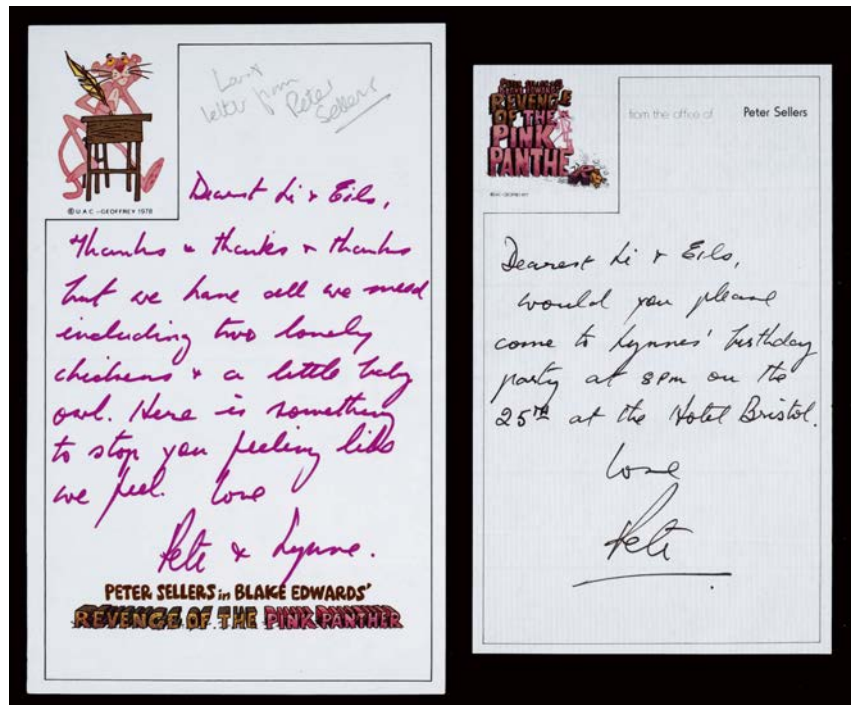 Last
letter from
Peter
Sellers
©U.A.C.-GEOFFREY 1978
Dearest Li & Eils,
Thanks & thanks & thanks
but we have all we need
including two lonely
chickens & a little baby
owl. Here is something
to stop you feeling like
we feel. Love
Pete & Lynne.
PETER SELLERS in BLAKE EDWARDS'
REVENGE OF THE PINK PANTHER
PETER SELLERS
REVENGE
OF THE
PINK
PANTHE
from the office of Peter Sellers
Dearest Li & Eils,
would you please
come to Lynnes' birthday
party at 8PM on the
25TH at the Hotel Bristol.
Love
Pete